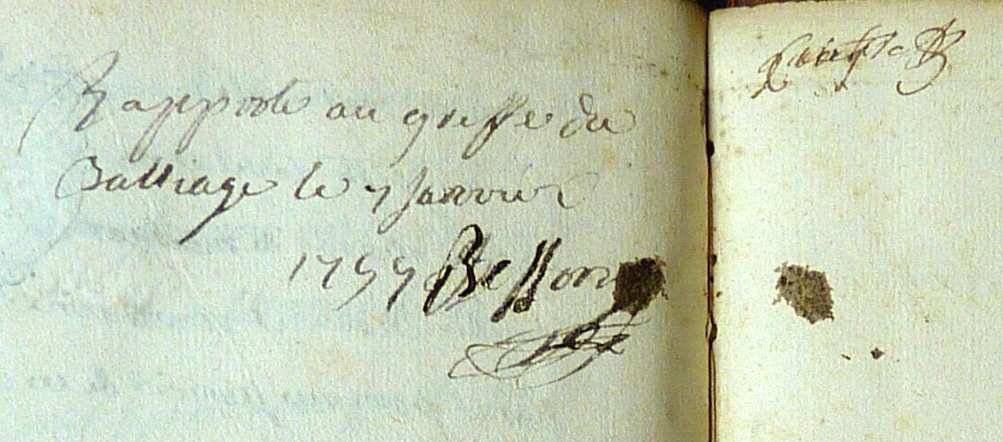 Rapporté au greffe du
Bailliage le 7 Janvier
1757 Besson